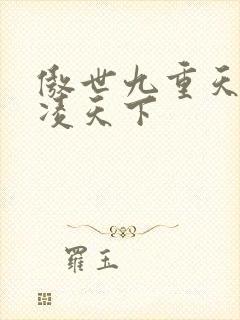 傲世九重天
凌天下
羅玉